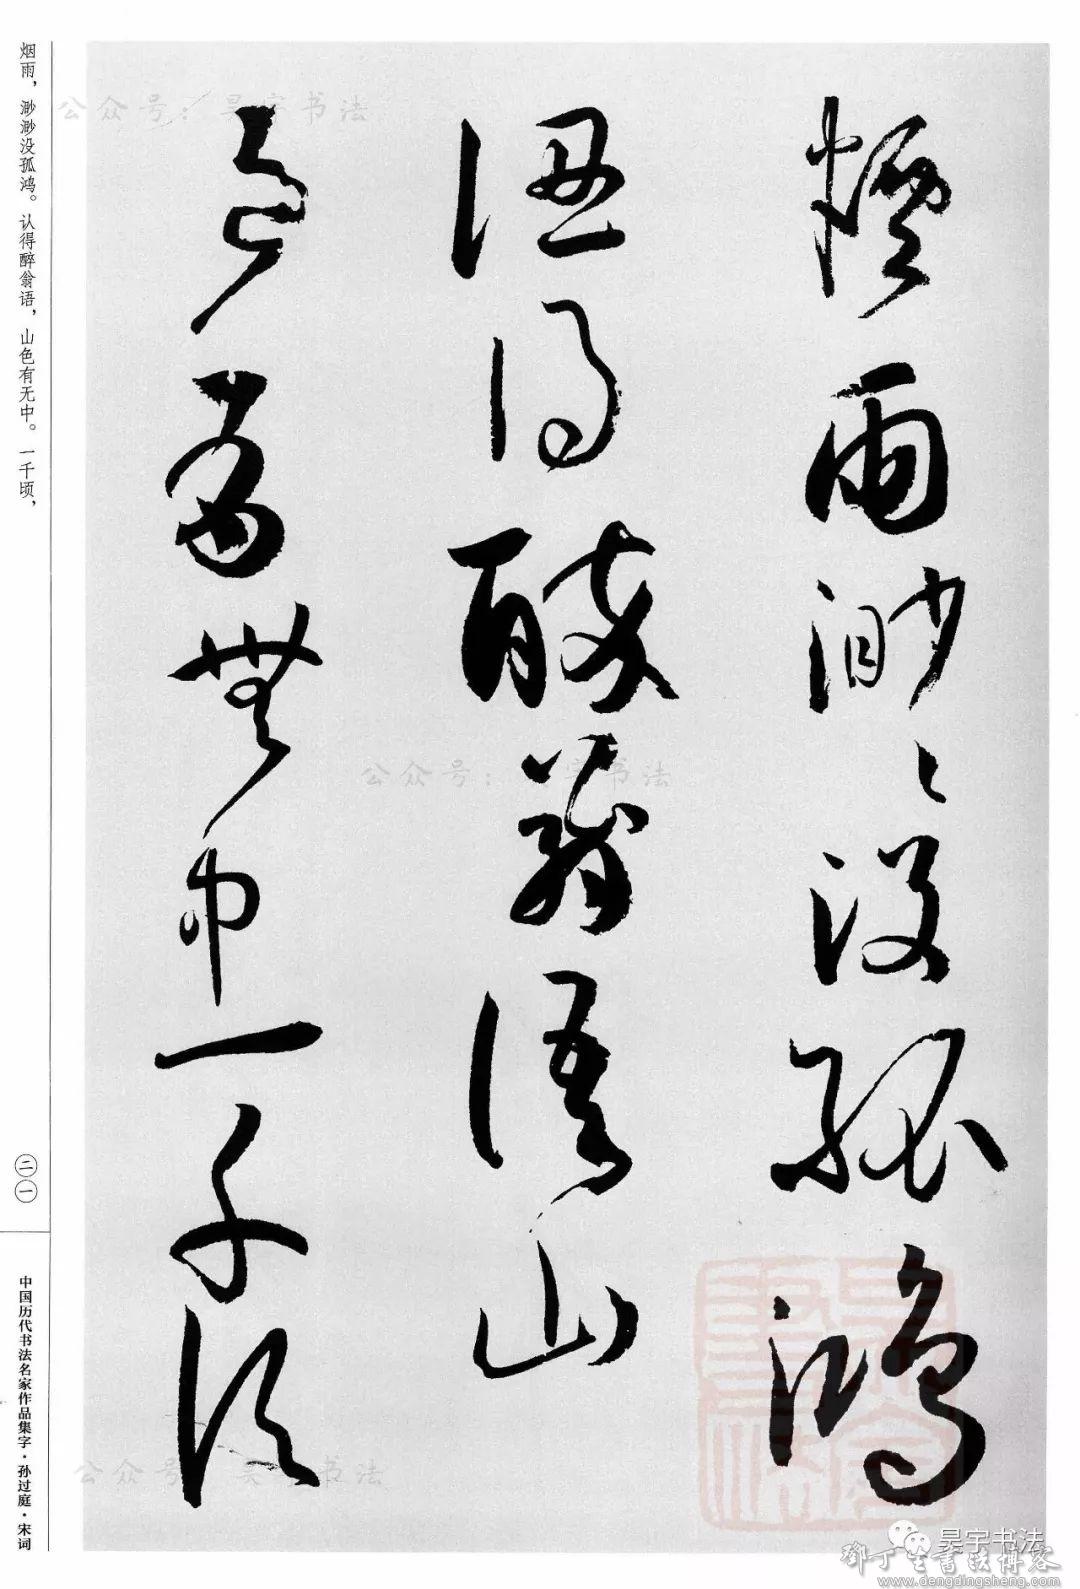 煙雨渺〻没孤鴻
認得醉翁語山
色有無中一千頃
烟雨，渺渺没孤鸿。认得醉翁语，山色有无中。一千顷，
二一
中国历代书法名家作品集字·孙过庭·宋词
公众号：昊宇书法
公众号：昊宇书法
公众号：昊宇书法
昊宇书法
鄧丁生書法博客
www.dengdingsheng.com